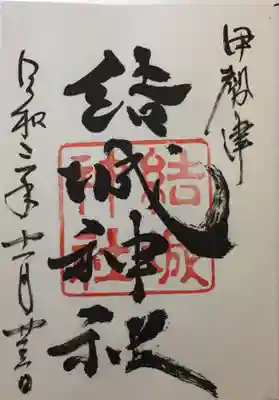 伊勢津
結城神社
結城
神社
令和二年十一月廿三日